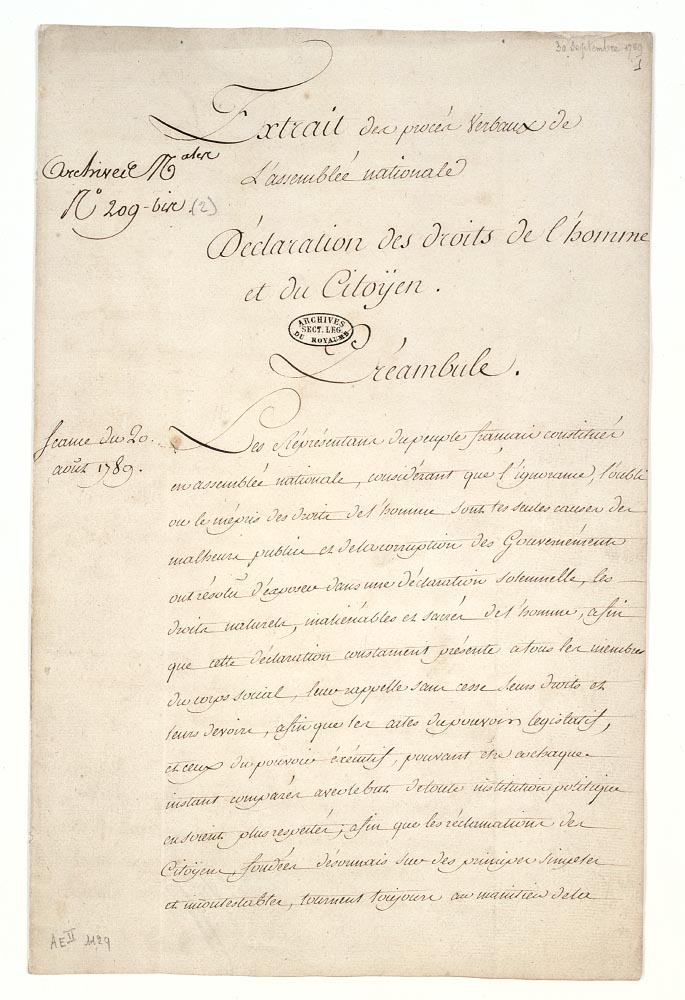 30 Septembre 1789
1
Extrait des procés Verbaux de
L'assemblée nationale
Archives N.ales
N.o 209-bis (2)
Déclaration des droits de l'homme
et du Citoÿen.
ARCHIVES
SECT. LEG.
DU ROYAUME
Préambule.
Seance du 20.
aout 1789.
Les Réprésentans du peuple francais constitués
en assemblée nationale, considérant que l'ignorance, l'oubli
ou le mépris des droits de l'homme sont les seules causes des
malheurs publics et de la corruption des Gouvernéments
ont résolu d'exposer dans une déclaration solemnelle, les
droits naturels, inaliénables et sacrés de l'homme, afin
que cette déclaration constament présente a tous les membres
du corps social, leur rappelle sans cesse leurs droits et
leurs devoirs, afin que les actes du pouvoir legislatif,
et ceux du pouvoir éxécutif, pouvant être a chaque
instant comparés avec le but de toute institution politique
en soient plus respectés; afin que les réclamations des
Citoÿens, fondées désormais sur des principes simples
et incontestables, tournent toujours au maintien de la
AE II 1129